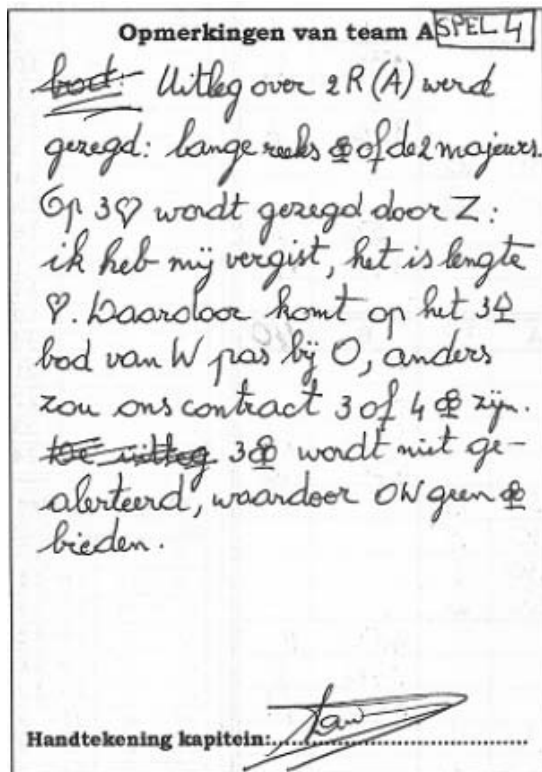 Opmerkingen van team A SPEL 4
bod: Uitleg over 2R (A) werd
gezegd: lange reeks ♣ of de 2 majeurs.
Op 3♡ wordt gezegd door Z:
ik heb mij vergist, het is lengte
♡. Daardoor komt op het 3♤
bod van W pas bij O, anders
zou ons contract 3 of 4 ♣ zijn.
De uitleg 3♣ wordt niet ge-
alerteerd, waardoor OW geen ♣
bieden.
Handtekening kapitein: